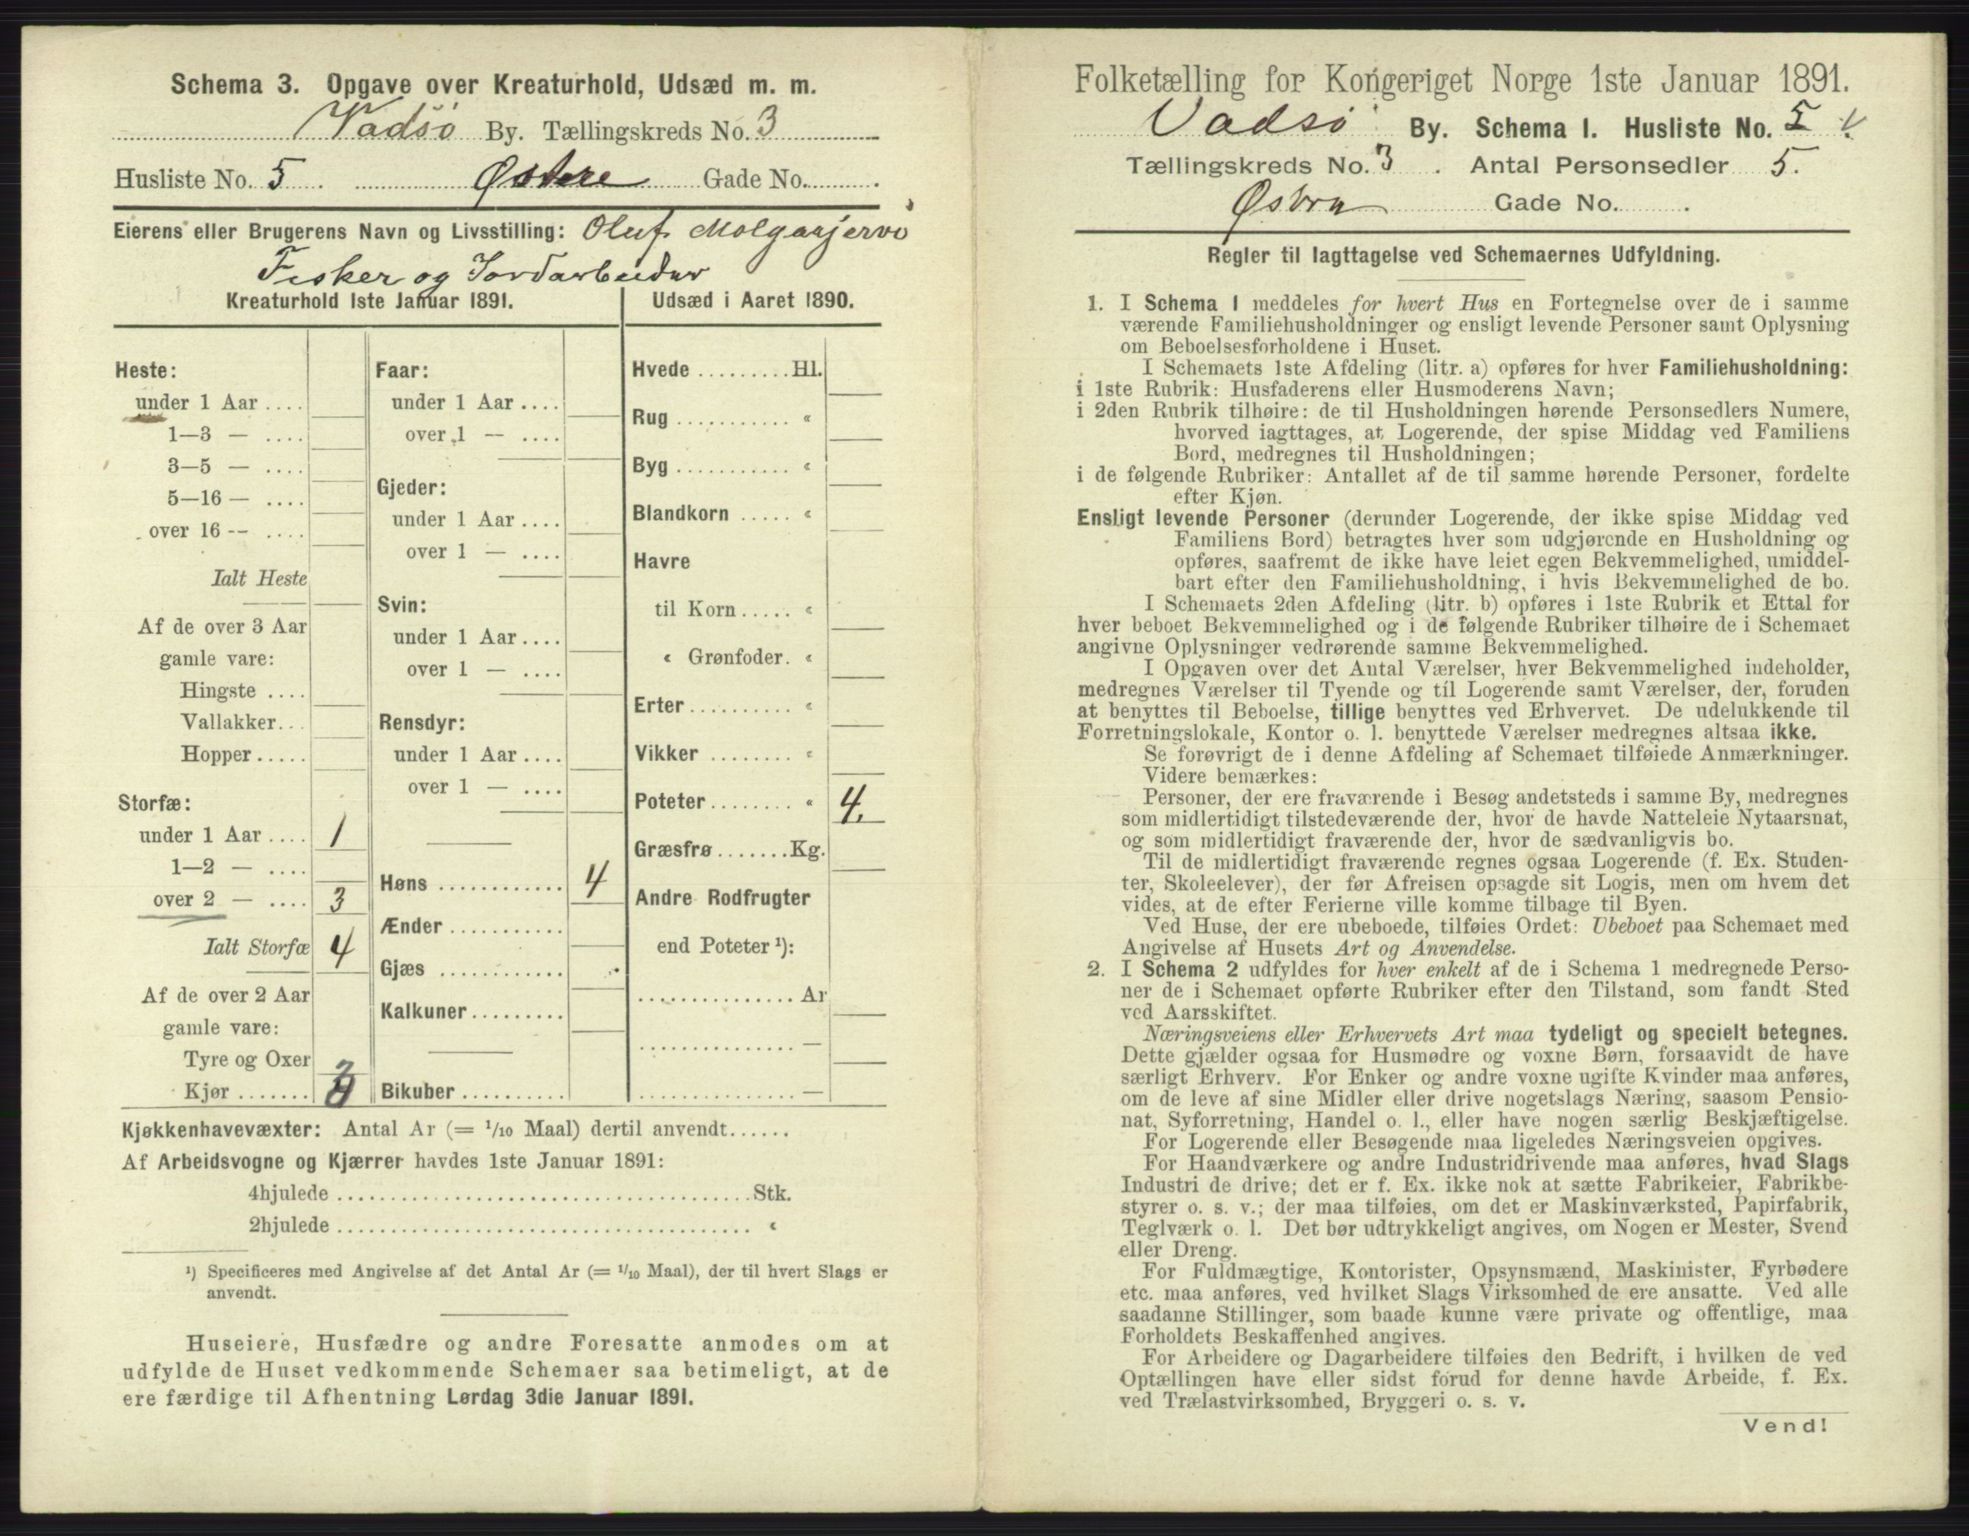 Schema 3. Opgave over Kreaturhold, Udsæd m. m.
Vadsö By. Tællingskreds No. 3
Husliste No. 5 Østere Gade No.
Eierens eller Brugerens Navn og Livsstilling: Oluf Molganjervi
Fisker og Jordarbeider
Kreaturhold 1ste Januar 1891.
Heste:
under 1 Aar ....
1—3 — ....
3—5 — ....
5—16 — ....
over 16 — ....
Ialt Heste
Af de over 3 Aar
gamle vare:
Hingste ....
Vallakker...
Hopper.....
Storfæ:
under 1 Aar .... 1
1—2 — ....
over 2 — .... 3
Ialt Storfæ 4
Af de over 2 Aar
gamle vare:
Tyre og Oxer
Kjør ....... 3
Faar:
under 1 Aar ....
over 1 — ....
Gjeder:
under 1 Aar ....
over 1 — ....
Svin:
under 1 Aar ....
over 1 — ....
Rensdyr:
under 1 Aar ....
over 1 — ....
Høns ............ 4
Ænder ...........
Gjæs ............
Kalkuner.........
Bikuber ..........
Udsæd i Aaret 1890.
Hvede .........Hl.
Rug ........... «
Byg ........... «
Blandkorn ..... «
Havre
til Korn ..... «
« Grønfoder. «
Erter.......... «
Vikker ........ «
Poteter........ « 4.
Græsfrø.......Kg.
Andre Rodfrugter
end Poteter ¹):
...............Ar
............... —
............... —
Kjøkkenhavevæxter: Antal Ar (= 1/10 Maal) dertil anvendt......
Af Arbeidsvogne og Kjærrer havdes 1ste Januar 1891:
4hjulede ........................................Stk.
2hjulede ........................................ «
¹) Specificeres med Angivelse af det Antal Ar (= 1/10 Maal), der til hvert Slags er
anvendt.
Huseiere, Husfædre og andre Foresatte anmodes om at
udfylde de Huset vedkommende Schemaer saa betimeligt, at de
ere færdige til Afhentning Lørdag 3die Januar 1891.
Folketælling for Kongeriget Norge 1ste Januar 1891.
Vadsö By. Schema 1. Husliste No. 5
Tællingskreds No. 3 . Antal Personsedler 5.
Østra Gade No. .
Regler til Iagttagelse ved Schemaernes Udfyldning.
1. I Schema 1 meddeles for hvert Hus en Fortegnelse over de i samme
værende Familiehusholdninger og ensligt levende Personer samt Oplysning
om Beboelsesforholdene i Huset.
I Schemaets 1ste Afdeling (litr. a) opføres for hver Familiehusholdning:
i 1ste Rubrik: Husfaderens eller Husmoderens Navn;
i 2den Rubrik tilhøire: de til Husholdningen hørende Personsedlers Numere,
hvorved iagttages, at Logerende, der spise Middag ved Familiens
Bord, medregnes til Husholdningen;
i de følgende Rubriker: Antallet af de til samme hørende Personer, fordelte
efter Kjøn.
Ensligt levende Personer (derunder Logerende, der ikke spise Middag ved
Familiens Bord) betragtes hver som udgjørende en Husholdning og
opføres, saafremt de ikke have leiet egen Bekvemmelighed, umiddel-
bart efter den Familiehusholdning, i hvis Bekvemmelighed de bo.
I Schemaets 2den Afdeling (litr. b) opføres i 1ste Rubrik et Ettal for
hver beboet Bekvemmelighed og i de følgende Rubriker tilhøire de i Schemaet
angivne Oplysninger vedrørende samme Bekvemmelighed.
I Opgaven over det Antal Værelser, hver Bekvemmelighed indeholder,
medregnes Værelser til Tyende og til Logerende samt Værelser, der, foruden
at benyttes til Beboelse, tillige benyttes ved Erhvervet. De udelukkende til
Forretningslokale, Kontor o. l. benyttede Værelser medregnes altsaa ikke.
Se forøvrigt de i denne Afdeling af Schemaet tilføiede Anmærkninger.
Videre bemærkes:
Personer, der ere fraværende i Besøg andetsteds i samme By, medregnes
som midlertidigt tilstedeværende der, hvor de havde Natteleie Nytaarsnat,
og som midlertidigt fraværende der, hvor de sædvanligvis bo.
Til de midlertidigt fraværende regnes ogsaa Logerende (f. Ex. Studen-
ter, Skoleelever), der før Afreisen opsagde sit Logis, men om hvem det
vides, at de efter Ferierne ville komme tilbage til Byen.
Ved Huse, der ere ubeboede, tilføies Ordet: Ubeboet paa Schemaet med
Angivelse af Husets Art og Anvendelse.
2. I Schema 2 udfyldes for hver enkelt af de i Schema 1 medregnede Perso-
ner de i Schemaet opførte Rubriker efter den Tilstand, som fandt Sted
ved Aarsskiftet.
Næringsveiens eller Erhvervets Art maa tydeligt og specielt betegnes.
Dette gjælder ogsaa for Husmødre og voxne Børn, forsaavidt de have
særligt Erhverv. For Enker og andre voxne ugifte Kvinder maa anføres,
om de leve af sine Midler eller drive nogetslags Næring, saasom Pensio-
nat, Syforretning, Handel o. l., eller have nogen særlig Beskjæftigelse.
For Logerende eller Besøgende maa ligeledes Næringsveien opgives.
For Haandværkere og andre Industridrivende maa anføres, hvad Slags
Industri de drive; det er f. Ex. ikke nok at sætte Fabrikeier, Fabrikbe-
styrer o. s. v.; der maa tilføies, om det er Maskinværksted, Papirfabrik,
Teglværk o. l. Det bør udtrykkeligt angives, om Nogen er Mester, Svend
eller Dreng.
For Fuldmægtige, Kontorister, Opsynsmænd, Maskinister, Fyrbødere
etc. maa anføres, ved hvilket Slags Virksomhed de ere ansatte. Ved alle
saadanne Stillinger, som baade kunne være private og offentlige, maa
Forholdets Beskaffenhed angives.
For Arbeidere og Dagarbeidere tilføies den Bedrift, i hvilken de ved
Optællingen have eller sidst forud for denne havde Arbeide, f. Ex.
ved Trælastvirksomhed, Bryggeri o. s. v.
Vend!